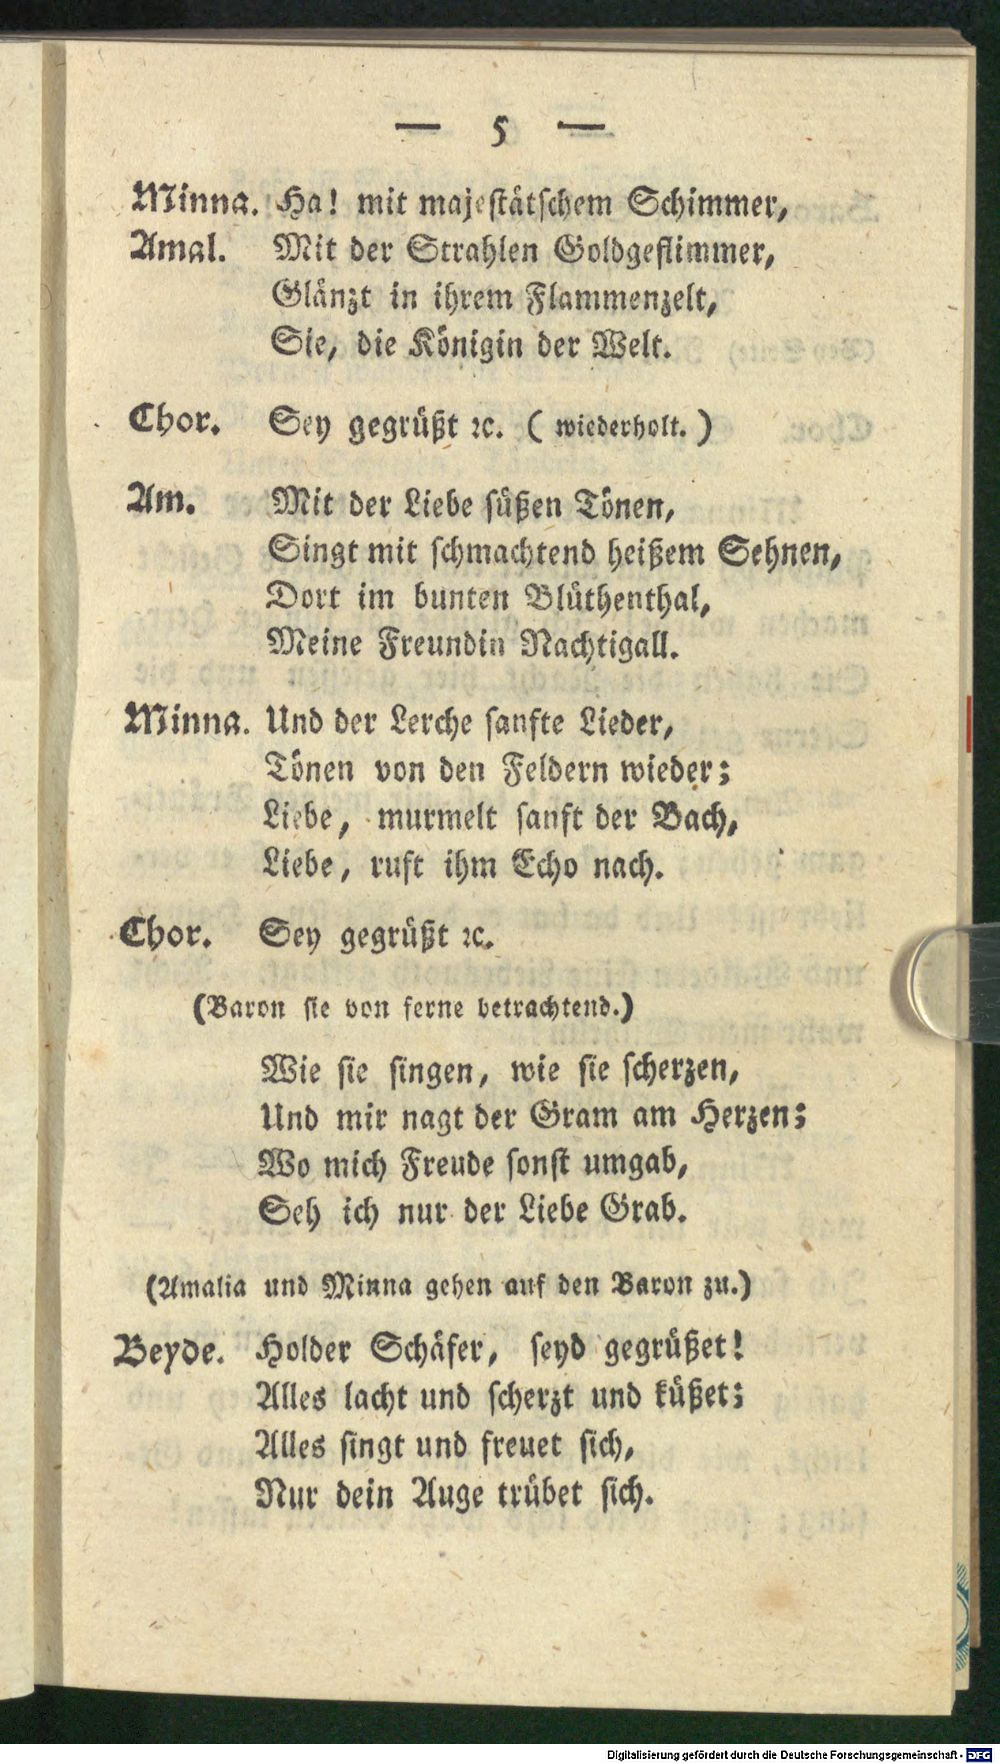 — 5 —
Minna. Ha! mit majestätschem Schimmer,
Amal. Mit der Strahlen Goldgeflimmer,
Glänzt in ihrem Flammenzelt,
Sie, die Königin der Welt.
Chor. Sey gegrüßt ꝛc. (wiederholt.)
Am. Mit der Liebe süßen Tönen,
Singt mit schmachtend heißem Sehnen,
Dort im bunten Blüthenthal,
Meine Freundin Nachtigall.
Minna. Und der Lerche sanfte Lieder,
Tönen von den Feldern wieder;
Liebe, murmelt sanft der Bach,
Liebe, ruft ihm Echo nach.
Chor. Sey gegrüßt ꝛc.
(Baron sie von ferne betrachtend.)
Wie sie singen, wie sie scherzen,
Und mir nagt der Gram am Herzen;
Wo mich Freude sonst umgab,
Seh ich nur der Liebe Grab.
(Amalia und Minna gehen auf den Baron zu.)
Beyde. Holder Schäfer, seyd gegrüßet!
Alles lacht und scherzt und küßet;
Alles singt und freuet sich,
Nur dein Auge trübet sich.
Digitalisierung gefördert durch die Deutsche Forschungsgemeinschaft - DFG